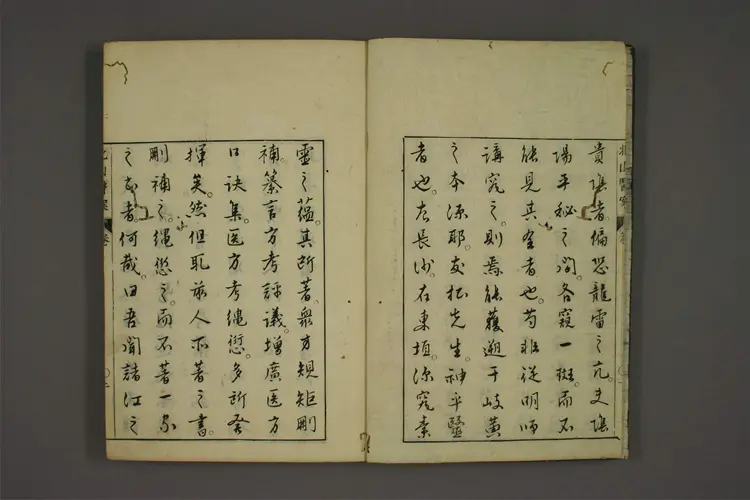 貴陰者。偏恐龍雷之亢。支陰
陽平秘之間。各窺一斑。而不
能見其全者也。苟非從明師
講究之。則焉能獲遡于岐黄
之本源耶。友松先生。神乎醫
者也。左長沙。右東垣。深究素
靈之蘊。其所著。衆方規矩刪
補。纂言方考評議。增廣医方
口訣集。医方考繩愆。多所發
揮矣。然但耻茲人所著之書。
刪補之。繩愆之。而不著一家
之書者何哉。曰吾聞諸江之
北山醫案